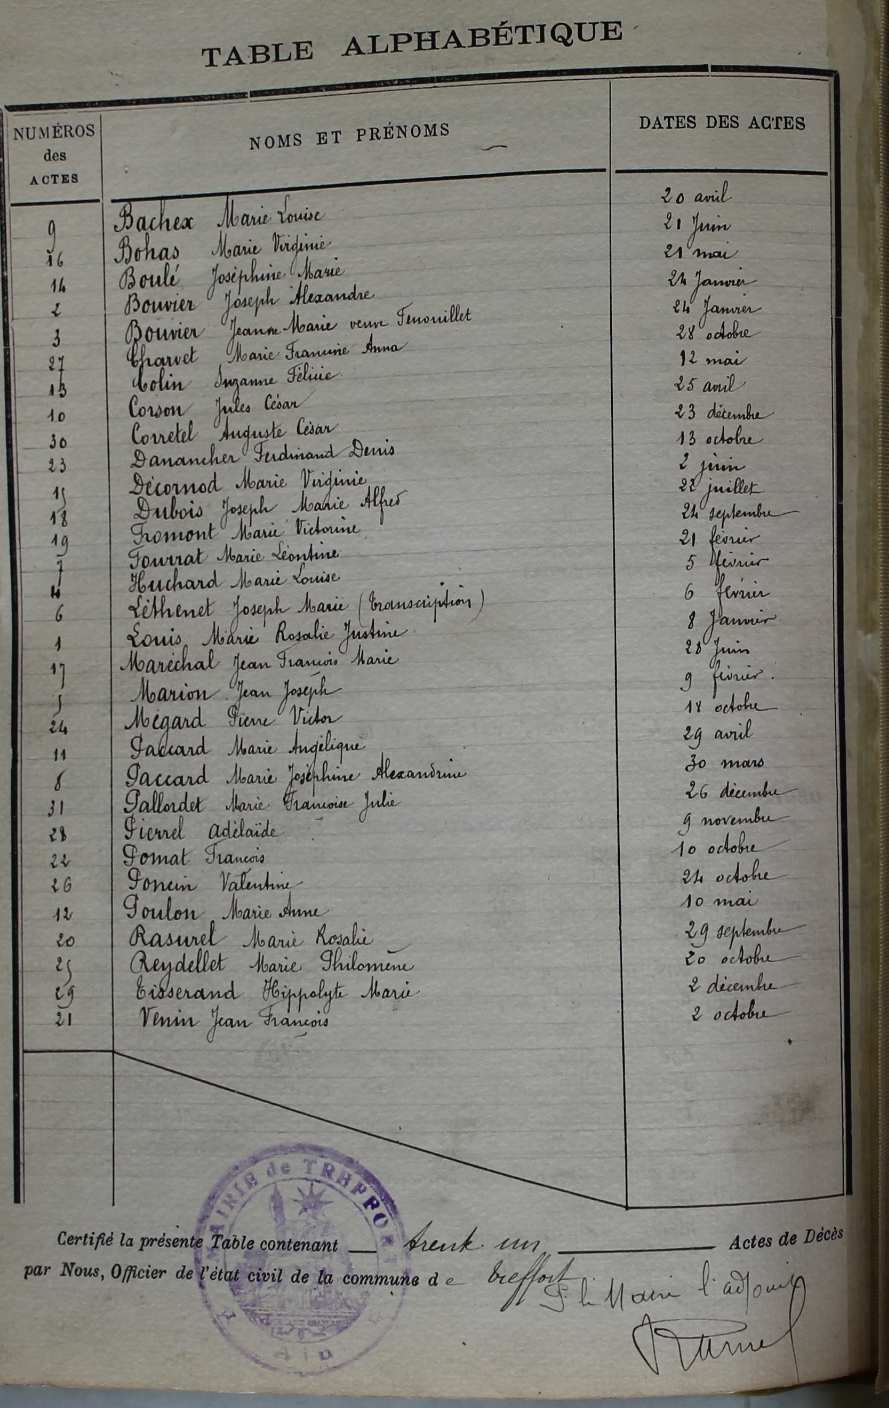 TABLE ALPHABÉTIQUE
NUMÉROS des ACTES NOMS ET PRÉNOMS DATES DES ACTES
9 Bachex Marie Louise 20 avril
16 Bohas Marie Virginie 21 Juin
14 Boulé Joséphine Marie 21 mai
2 Bouvier Joseph Alexandre 24 Janvier
3 Bouvier Jeanne Marie veuve Fenouillet 24 Janvier
27 Charvet Marie Francine Anna 28 octobre
13 Colin Suzanne Félicie 12 mai
10 Corson Jules César 25 avril
30 Corretel Auguste César 23 décembre
23 Danancher Ferdinand Denis 13 octobre
15 Décornod Marie Virginie 2 juin
18 Dubois Joseph Marie Alfred 22 juillet
19 Fromont Marie Victorine 24 septembre
7 Fourrat Marie Léontine 21 février
4 Huchard Marie Louise 5 février
6 Léthenet Joseph Marie (Transcription) 6 février
1 Louis Marie Rosalie Justine 8 Janvier
17 Maréchal Jean François Marie 28 Juin
5 Marion Jean Joseph 9 février
24 Mégard Pierre Victor 18 octobre
11 Paccard Marie Angélique 29 avril
8 Paccard Marie Joséphine Alexandrine 30 mars
31 Pallordet Marie Françoise Julie 26 décembre
28 Pierrel Adélaïde 9 novembre
22 Pomat François 10 octobre
26 Poncin Valentine 24 octobre
12 Poulon Marie Anne 10 mai
20 Rasurel Marie Rosalie 29 septembre
25 Reydellet Marie Philomène 20 octobre
29 Tisserand Hippolyte Marie 2 décembre
21 Venin Jean François 2 octobre
MAIRIE de TREFFORT
Ain
Certifié la présente Table contenant trente un Actes de Décès
par Nous, Officier de l'état civil de la commune de Treffort
P. le Maire l'adjoint